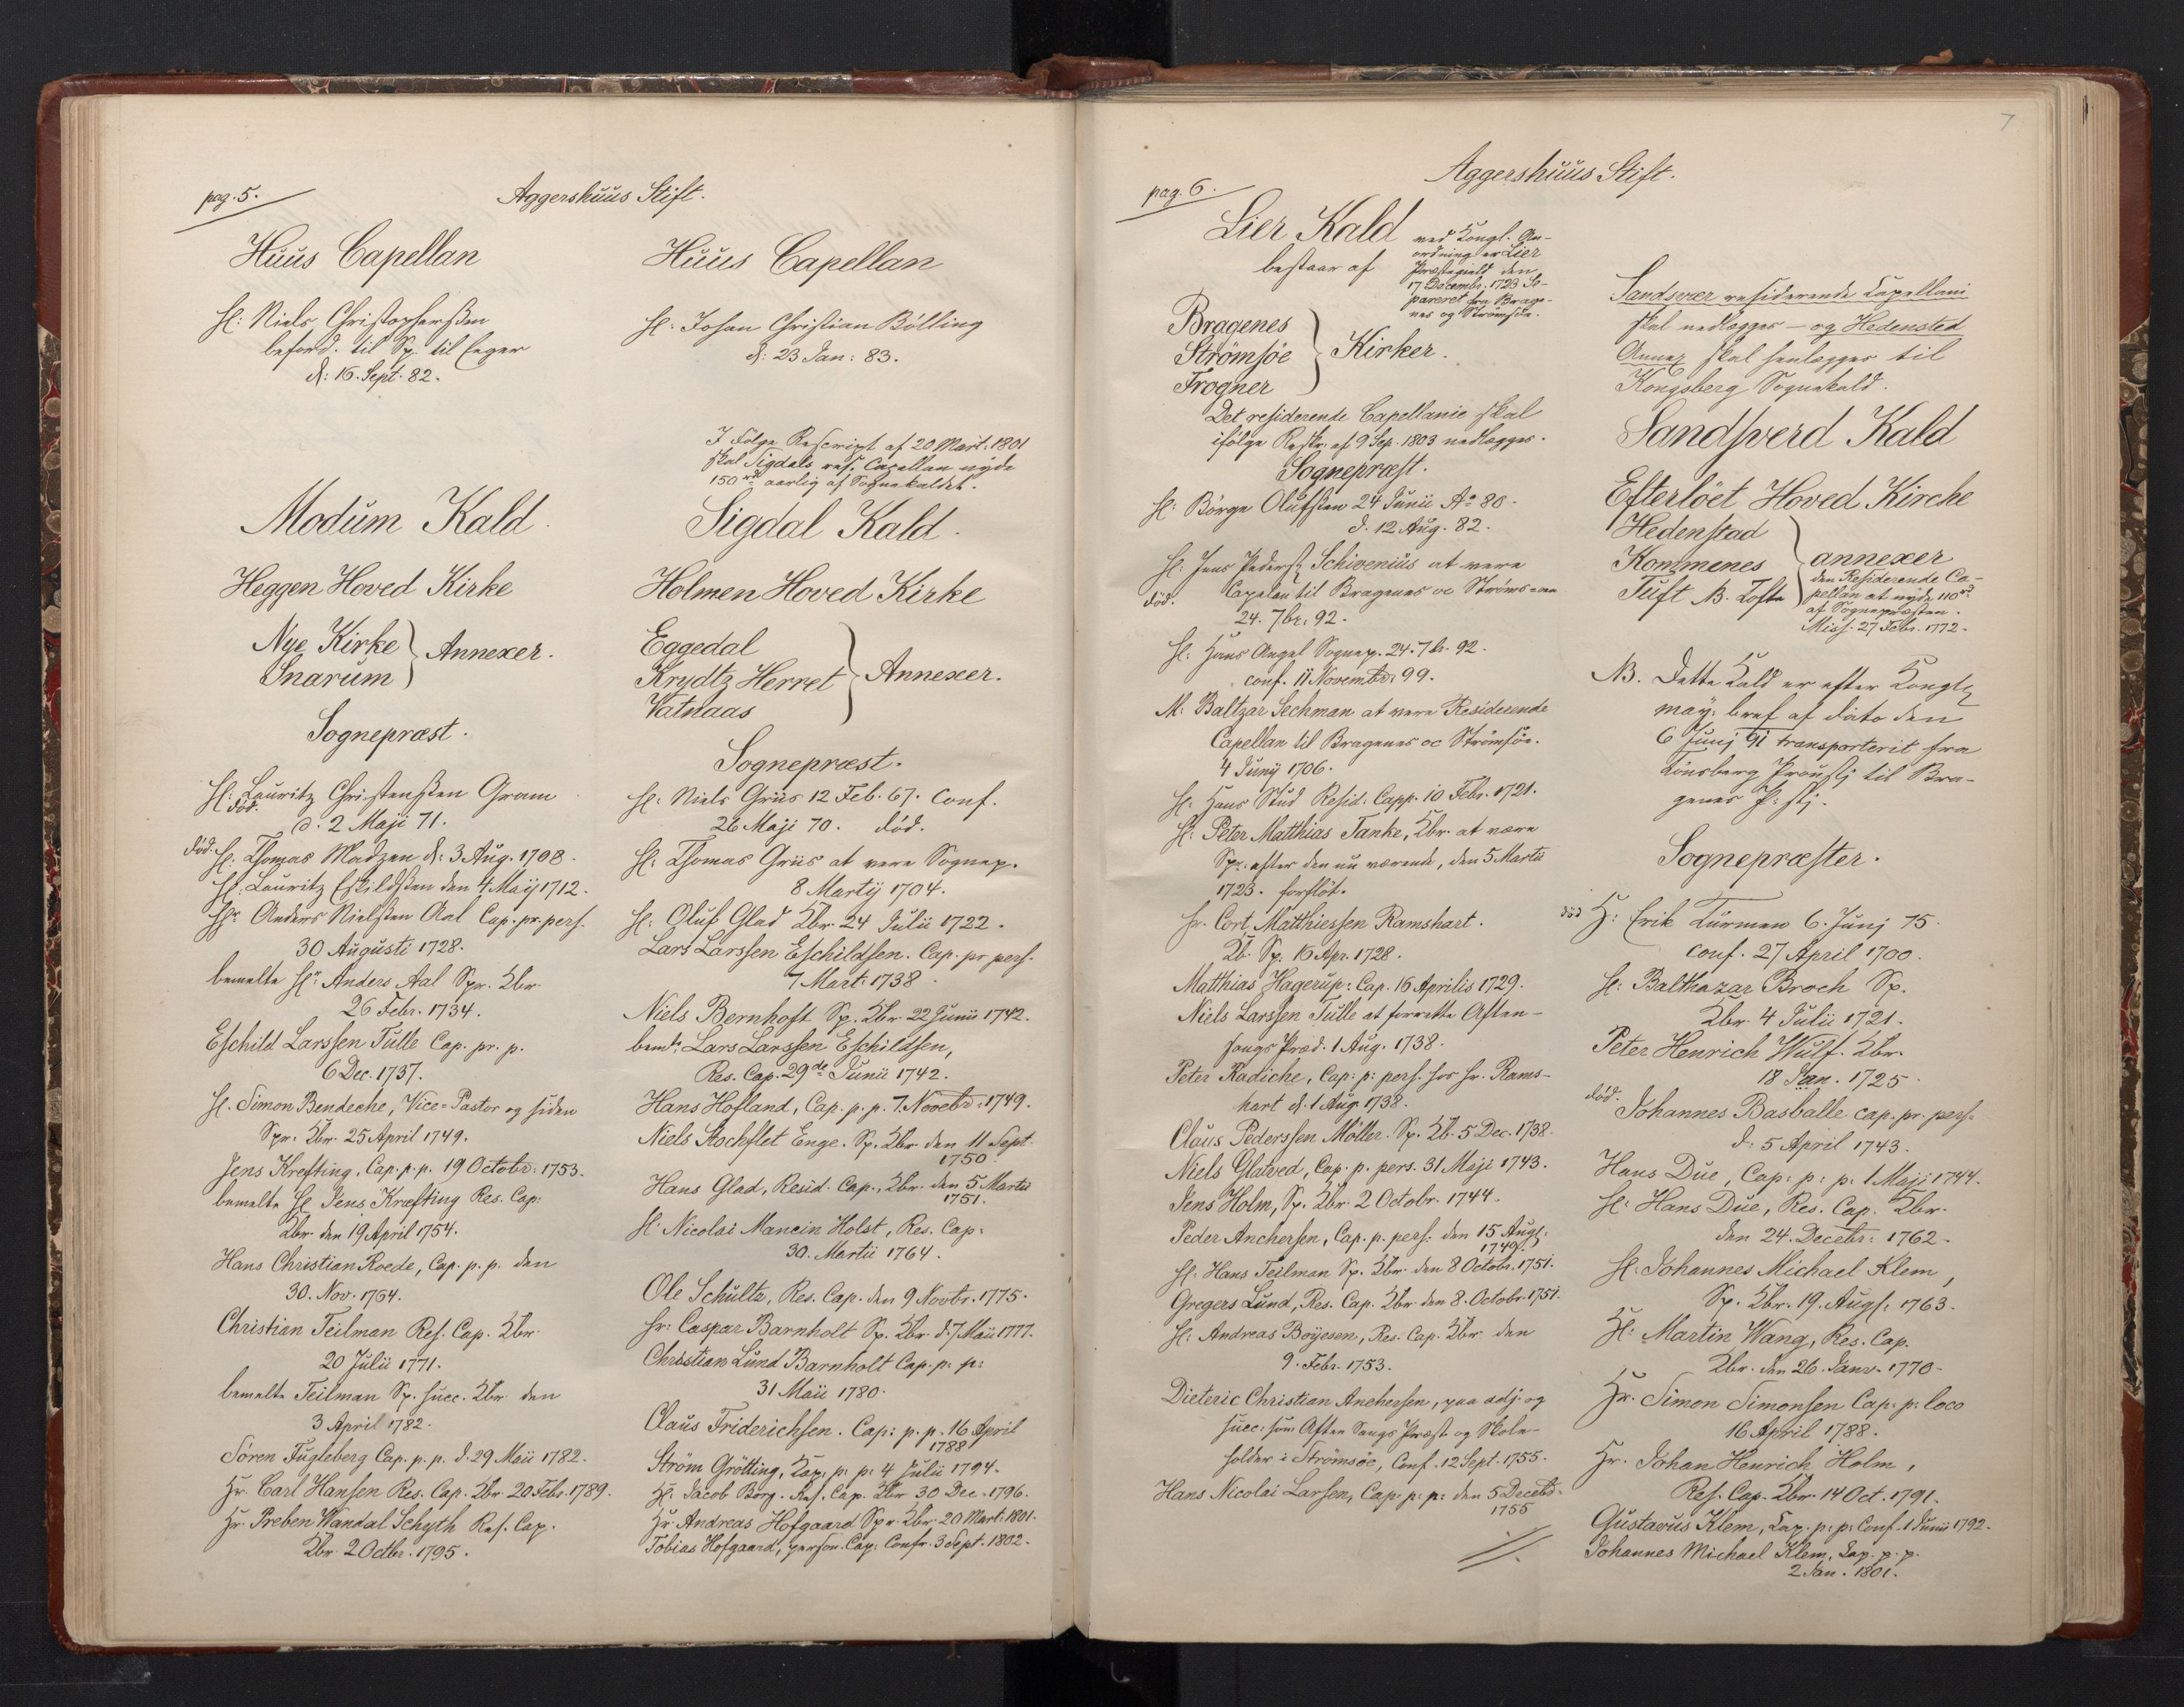 pag. 5.
Aggershuus Stift.
Huus Capellan
H: Niels Christophersen
beford. til Sp. til Eeger
d: 16. Sept. 82.
Modum Kald.
Heggen Hoved Kirke
Nye Kirke } Annexer.
Snarum
Sognepræst.
H: Lauritz Christensen Gram
død.
d. 2 Maji 71.
død. H: Thomas Madzen d: 3 Aug. 1708.
H: Lauritz Eskildsen den 4 Maij 1712.
Hr Anders Nielsen Aal Cap. pr. pers.
30 Augusti 1728.
bemelte Hr Anders Aal Spr. Kbr.
26 Febr. 1734.
Eschild Larssen Tulle Cap. pr. p.
6 Dec. 1737.
H. Simon Bendeche, Vice-Pastor og siden
Spr. Kbr. 25 April 1749.
Jens Krefting, Cap. p. p. 19 Octobr: 1753.
bemelte H Jens Kræfting Res. Cap.
Kbr. den 19 April 1754.
Hans Christian Roede, Cap. p. p. den
30. Nov. 1764.
Christian Teilman Res. Cap. Kbr.
20 Julii 1771.
bemelte Teilman Sp. succ. Kbr. den
3 April 1782.
Søren Fugleberg Cap. p. p. d. 29 Maii 1782.
Hr. Carl Hansen Res. Cap. Kbr. 20 Febr. 1789.
Hr. Preben Wandal Schyth Res. Cap.
Kbr. 2 Octbr. 1795.
Huus Capellan
H: Johan Christian Bölling
d: 23 Jan: 83.
I Følge Rescript af 20 Mart. 1801
skal Sigdals res. Capellan nyde
150 rd aarlig af Sognekaldet.
Sigdal Kald.
Holmen Hoved Kirke
Eggedal
Krydtz Herret } Annexer.
Vatnaas
Sognepræst.
H: Niels Griis 12 Feb. 67. Conf.
26 Maji 70. død.
H: Thomas Griis at vere Sognep.
8 Martij 1704.
H: Oluf Glad Kbr. 24 Julii 1722.
Lars Larssen Eschildsen. Cap. pr pers.
7 Mart. 1738.
Niels Bernhoft Sp. Kbr. 22 Junii 1742.
bemte. Lars Larssen Eschildsen,
Res. Cap. 29de Junii 1742.
Hans Hofland, Cap. p. p. 7. Novebr. 1749.
Niels Stochflet Enge. Sp. Kbr. den 11 Sept.
1750
Hans Glad, Resid. Cap., Kbr. den 5 Martii
1751.
H. Nicolai Mancin Holst, Res. Cap:
30. Martii 1764.
Ole Schultz, Res. Cap. den 9 Novbr. 1775.
Hr: Caspar Barnholt Sp. Kbr. d. 7 Maii 1777.
Christian Lund Barnholt Cap. p: p:
31 Maii 1780.
Claus Friderichsen. Cap: p. p. 16 April
1788
Ström Grötting, Cap. p: p: 4 Julii 1794.
H. Jacob Borg. Res. Cap. Kbr 30 Dec. 1796.
Hr Andreas Hofgaard Spr. Kbr. 20 Mart. 1801.
Tobias Hofgaard, person. Cap: Confr. 3 Sept. 1802.
7
pag. 6.
Aggershuus Stift.
Lier Kald
bestaar af
ved Kongl. An-
ordning er Lier
Præstegield den
17 Decembr. 1723 Se-
pareret fra Brage-
nes og Strømsøe.
Bragenes
Strömsöe } Kirker.
Frogner
Det residerende Capellanie skal
ifølge Reskr. af 9 Sep. 1803 nedlægges.
Sognepræst.
H: Börge Olufsen 24 Junii Ao 80.
d. 12 Aug. 82.
H: Jens Peders Schivenius at vere
død. Capelan til Bragenes oc Strømsøen
24. 7br. 92.
H: Hans Angel Sognep. 24. 7br. 92.
conf. 11 Novembr. 99.
M: Baltzar Sechman at vere Residerende
Capellan til Bragenes oc Strömsöe.
4 Junij 1706.
H: Hans Stud Resid: Capp. 10 Febr. 1721.
H: Peter Matthias Tanke, Kbr. at være
Spr. efter den nu værende, den 5 Martii
1723. forfløt.
Hr. Cort Matthiessen Ramshart.
Kb. Sp. 16 Apr. 1728.
Matthias Hagerup: Cap. 16 Aprilis 1729.
Niels Larssen Tulle at forrette Aften-
sangs Præd. 1 Aug. 1738.
Peter Radiche, Cap: p: pers. hos Hr. Rams-
hart d. 1 Aug. 1738.
Claus Pederssen Möller. Sp. Kb. 5 Dec. 1738.
Niels Glatved, Cap. p. pers. 31 Maji 1743.
Jens Holm, Sp. Kbr. 2 Octobr. 1744.
Peder Anchersen, Cap. p. pers. den 15 Augs.
1749.
H: Hans Teilman Sp. Kbr. den 8 Octobr. 1751.
Gregers Lund, Res. Cap. Kbr. den 8. Octobr. 1751.
H: Andreas Boyesen, Res. Cap. Kbr. den
9. Febr. 1753.
Dieteric Christian Anchersen, paa adj. og
succ. som Aften Sangs Præst og Skole-
holder i Strömsöe, Conf. 12 Sept. 1755.
Hans Nicolai Larsen, Cap: p: p: den 5 Decebr.
1755
Sandsvær residerende Capellani
skal nedlægges – og Hedensted
Annex skal henlægges til
Kongsberg Sognekald.
Sandsverd Kald
Efterlöet Hoved Kirche
Hedenstad
Kommenes } annexer
Tuft N. Lofte
den Residerende Ca-
pellan at nyde 110 rd
af Sognepræsten.
Miss. 27 Febr. 1772.
NB. Dette Kald er efter Kongl.
may: bref af dato den
6 Junj 91 transporterit fra
Tønsberg Proustj til Bra-
genes P: stj.
Sognepræster.
død H: Erik Kurmen 6. Junj 75.
conf. 27 April 1700.
H: Balthazar Broch Sp.
Kbr. 4 Julii 1721.
Peter Henrich Wulf. Kbr.
18 Jan. 1725.
død. Johannes Basballe cap. pr. pers.
d. 5 April 1743.
Hans Due, Cap: p: p: 1 Maji 1744.
H: Hans Due, Res. Cap. Kbr.
den 24. Decebr: 1762.
H: Johannes Michael Klem,
Sp. Kbr. 19. Augs: 1763.
H: Martin Wang, Res. Cap.
Kbr. den 26. Janv. 1770.
Hr. Simon Simonsen Cap. p: loco
16 April 1788.
Hr. Johan Henrich Holm,
Res. Cap. Kbr. 14 Oct. 1791.
Gustavus Klem, Cap. p: p: Conf. 1 Junii 1792.
Johannes Michael Klem, Cap. p. p.
2 Jan. 1801.